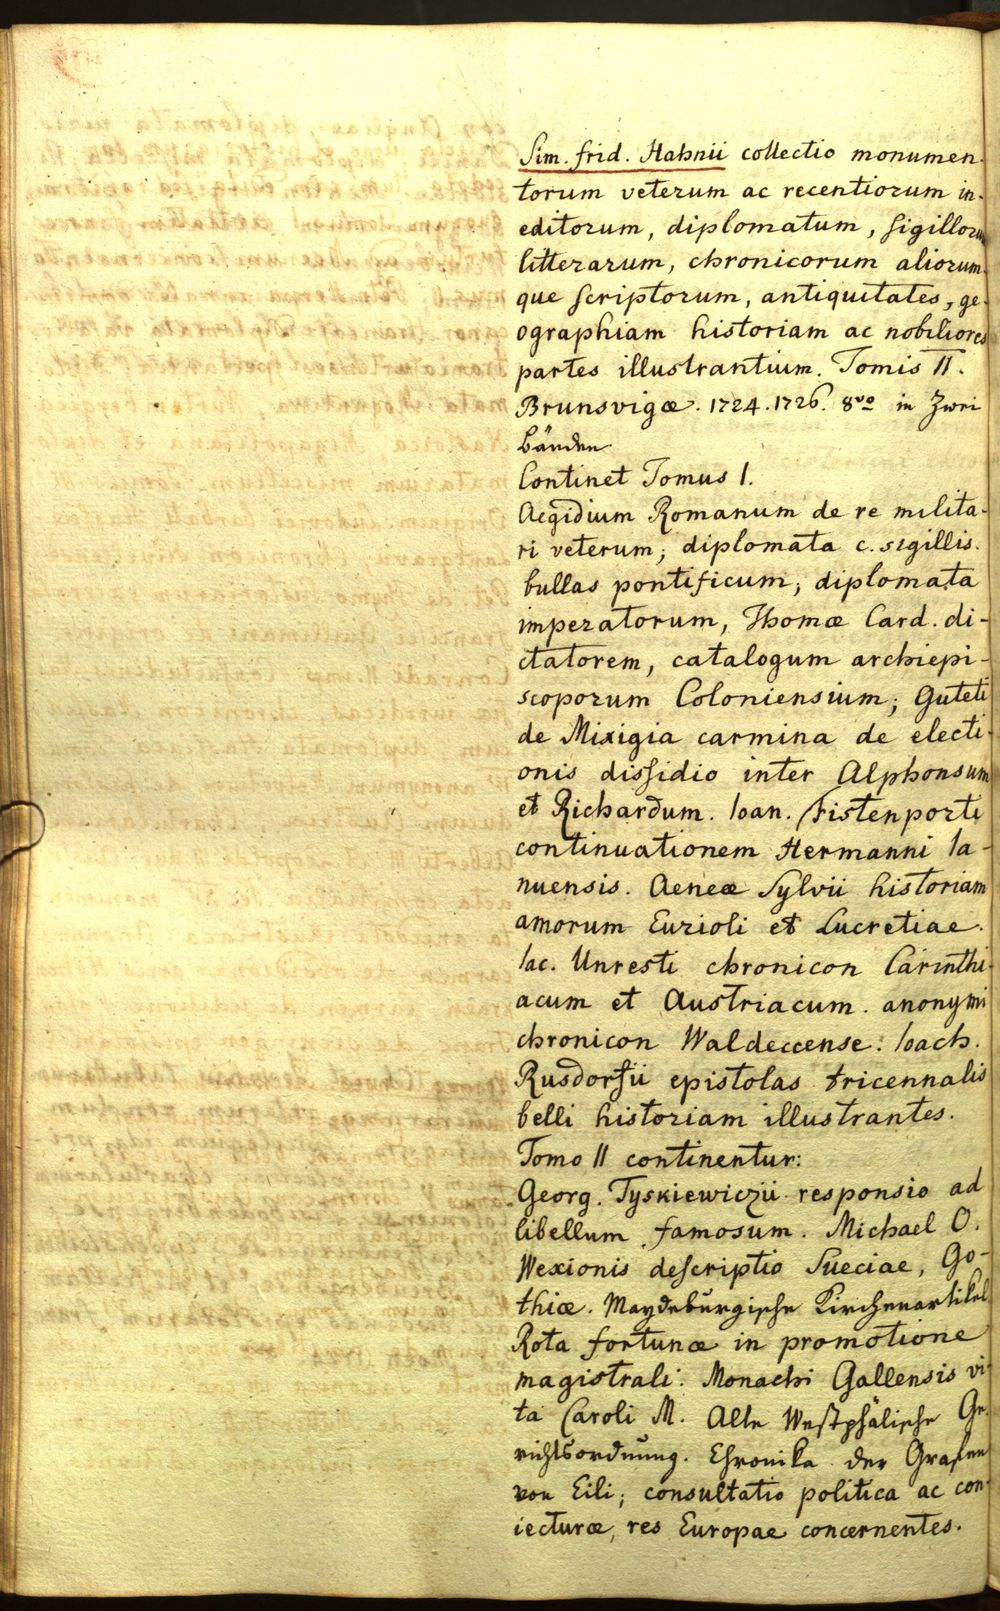 Sim. frid. Hahnii collectio monumen-
torum veterum ac recentiorum in-
editorum, diplomatum, sigillorum
litterarum, chronicorum aliorum-
que scriptorum, antiquitates, ge-
ographiam historiam ac nobiliores
partes illustrantium. Tomis II.
Brunsvigæ. 1724. 1726. 8vo in Zwei
bänden
Continet Tomus I.
Aegidium Romanum de re milita-
ri veterum; diplomata c. sigillis.
bullas pontificum; diplomata
imperatorum, Thomæ Card. di-
ctatorem, catalogum archiepi-
scoporum Coloniensium; Guteti
de Mixigia carmina de electi-
onis dissidio inter Alphonsum
et Richardum. Ioan. Fistenporti
continuationem Hermanni Ia-
nuensis. Aeneæ Sylvii historiam
amorum Eurioli et Lucretiae.
Iac. Unresti chronicon Carinthi-
acum et Austriacum. anonymi
chronicon Waldeccense. Ioach.
Rusdorfii epistolas tricennalis
belli historiam illustrantes.
Tomo II continentur:
Georg. Tyskiewiczii responsio ad
libellum famosum. Michael O.
Wexionis descriptio Sueciae, Go-
thiæ. Maydeburgische Kirchenartikel
Rota fortunæ in promotione
magistrali. Monachi Gallensis vi-
ta Caroli M. Alte Westphälische Ge-
richtsordnung. Chronika der Grafen
von Cili; consultatio politica ac con-
iecturæ, res Europae concernentes.